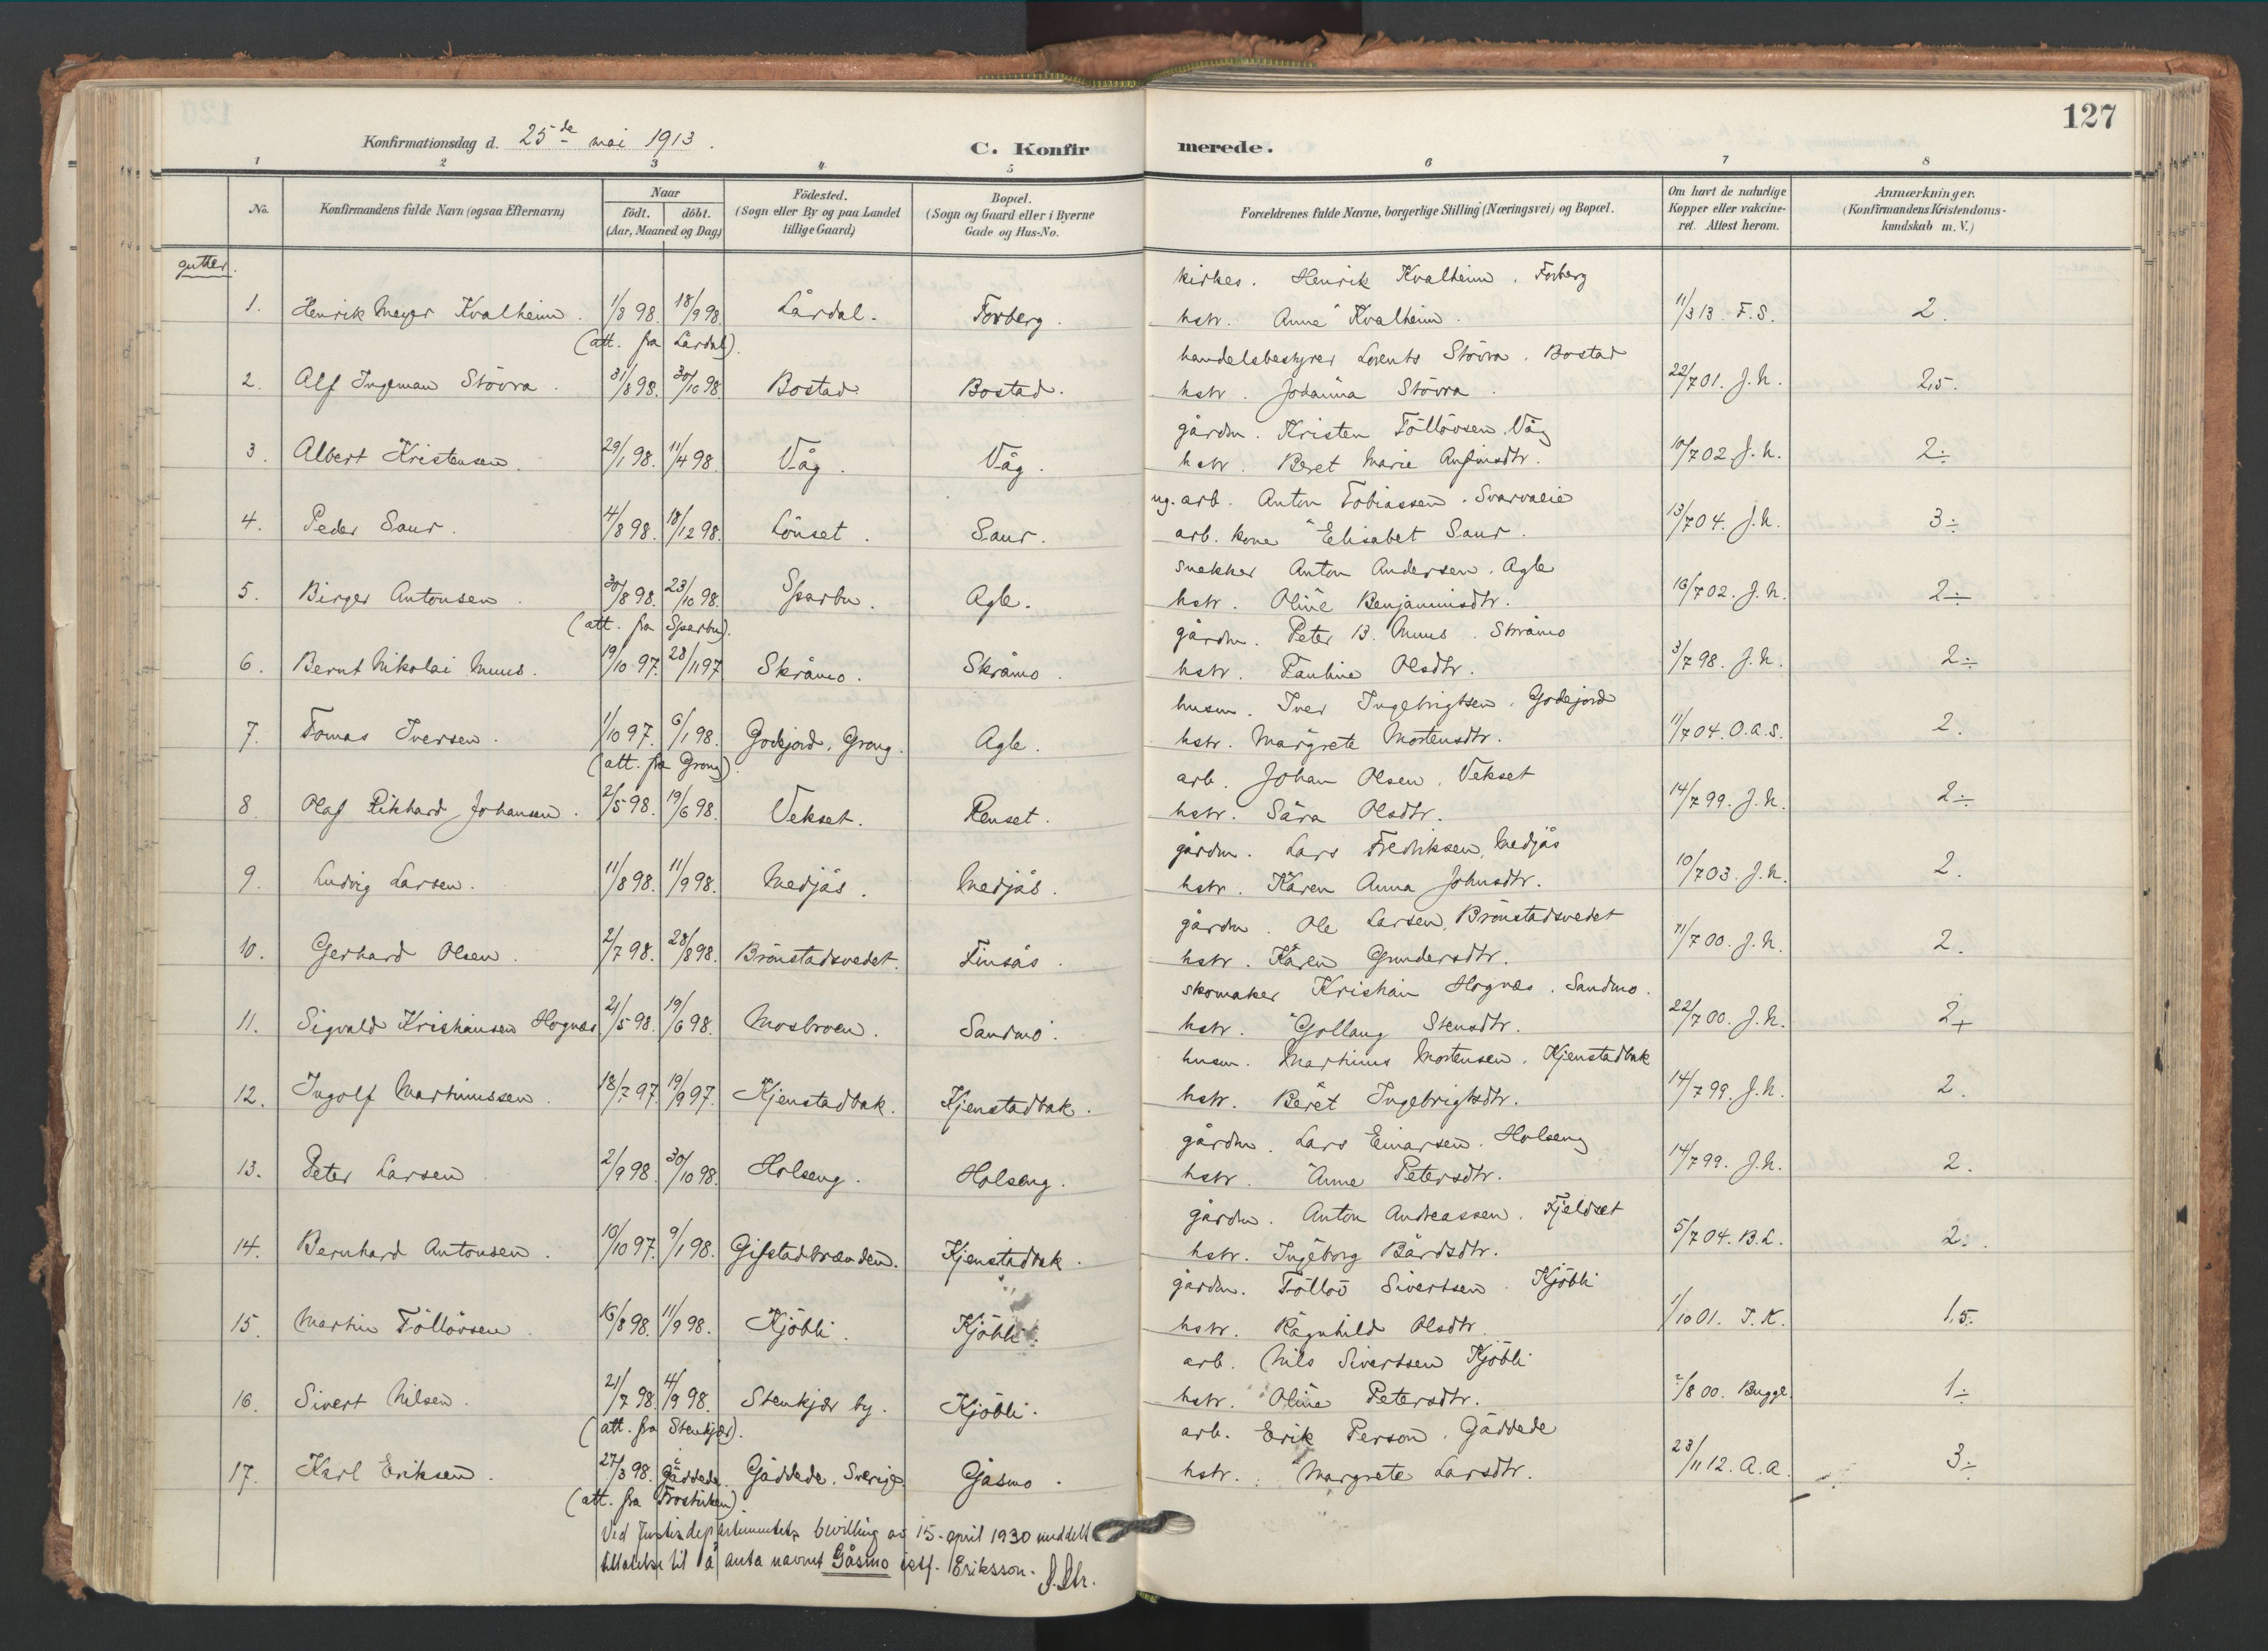 127
Konfirmationsdag d. 25de mai 1913.
C. Konfirmerede.
1 2 3 4 5 6 7 8
No.
Konfirmandens fulde Navn (ogsaa Efternavn)
Naar
födt. döbt.
(Aar, Maaned og Dag)
Födested.
(Sogn eller By og paa Landet
tillige Gaard)
Bopæl.
(Sogn og Gaard eller i Byerne
Gade og Hus-No.
Forældrenes fulde Navne, borgerlige Stilling (Næringsvei) og Bopæl.
Om havt de naturlige
Kopper eller vakcine-
ret. Attest herom.
Anmærkninger.
(Konfirmandens Kristendoms-
kundskab m. V.)
gutter.
kirkes. Henrik Kvalheim. Forberg
1. Henrik Meyer Kvalheim. 1/8 98. 18/9 98. Lårdal. Forberg. hstr. Anna Kvalheim. 11/3 13. F.S. 2.
(att. fra Lårdal).
handelsbestyrer Lorents Stövra. Bostad
2. Alf Ingeman Stövra. 31/8 98. 30/10 98. Bostad. Bostad. hstr. Johanna Stövra. 22/7 01. J.N. 2,5.
gårdm. Kristen Föllövsen. Våg
3. Albert Kristensen. 29/1 98. 11/4 98. Våg. Våg. hstr. Beret Marie Anfinsdtr. 10/7 02. J.N. 2÷
ug. arb. Anton Tobiassen. Svarvaeie
4. Peder Saur. 4/8 98. 18/12 98. Lönset. Saur. arb. kone Elisabet Saur. 13/7 04. J.N. 3÷
snekker Anton Andersen. Agle
5. Birger Antonsen. 30/8 98. 23/10 98. Sparbu. Agle. hstr. Oline Benjaminsdtr. 16/7 02. J.N. 2÷
(att. fra Sparbu).
gårdm. Peter B. Muus. Skråmo
6. Bernt Nikolai Muus. 19/10 97. 28/11 97 Skråmo. Skråmo. hstr. Pauline Olsdtr. 3/7 98. J.N. 2÷
husm. Iver Ingebrigtsen. Godejord
7. Tomas Iversen. 1/10 97. 6/1 98. Godejord, Grong. Agle. hstr. Margrete Mortensdtr. 11/7 04. O.A.S. 2.
(att. fra Grong).
arb. Johan Olsen. Vekset
8. Olaf Rikhard Johansen. 2/5 98. 19/6 98. Vekset. Renset. hstr. Sara Olsdtr. 14/7 99. J.N. 2÷
gårdm. Lars Fredriksen, Medjås
9. Ludvig Larsen. 11/8 98. 11/9 98. Medjås. Medjås. hstr. Karen Anna Johnsdtr. 10/7 03. J.N. 2.
gårdm. Ole Larsen, Brönstadsvedet
10. Gerhard Olsen. 2/7 98. 28/8 98. Brönstadsvedet. Finsås. hstr. Karen Gundersdtr. 11/7 00. J.N. 2.
skomaker Kristian Hognes. Sandmo.
11. Sigvald Kristiansen Hognes 21/5 98. 19/6 98. Mosbroen. Sandmo. hstr. Gollaug Stensdtr. 22/7 00. J.N. 2+
husm. Martinus Mortensen. Kjenstadbak
12. Ingolf Martinussen. 18/7 97. 19/9 97. Kjenstadbak. Kjenstadbak. hstr. Beret Ingebrigtsdtr. 14/7 99. J.N. 2.
gårdm. Lars Einarsen. Holseng
13. Peter Larsen. 2/9 98. 30/10 98. Holseng. Holseng. hstr. Anne Petersdtr. 14/7 99. J.N. 2.
gårdm. Anton Andreassen. Fjeldset
14. Bernhard Antonsen. 10/10 97. 9/1 98. Gifstadbrænden. Kjenstadbak. hstr. Ingeborg Bårdsdtr. 5/7 04. B.L. 2.
gårdm. Föllöv Sivertsen. Kjöbli
15. Martin Föllövsen. 16/8 98. 11/9 98. Kjöbli. Kjöbli. hstr. Ragnhild Olsdtr. 1/10 01. T.K. 1,5.
arb. Nils Sivertsen Kjöbli
16. Sivert Nilsen. 21/7 98. 4/9 98. Stenkjær by. Kjöbli. hstr. Oline Petersdtr. /8 00. Bugge. 1÷
(att. fra Stenkjær).
arb. Erik Person. Gäddede
17. Karl Eriksen. 27/3 98. i Gäddede. Gäddede. Sverige. Gåsmo. hstr. Margrete Larsdtr. 23/11 12. A.A. 3÷
(att. fra Frostviken).
Ved Justisdepartementets bevilling av 15. april 1930 meddelt
tillatelse til å anta navnet Gåsmo istf. Eriksson.